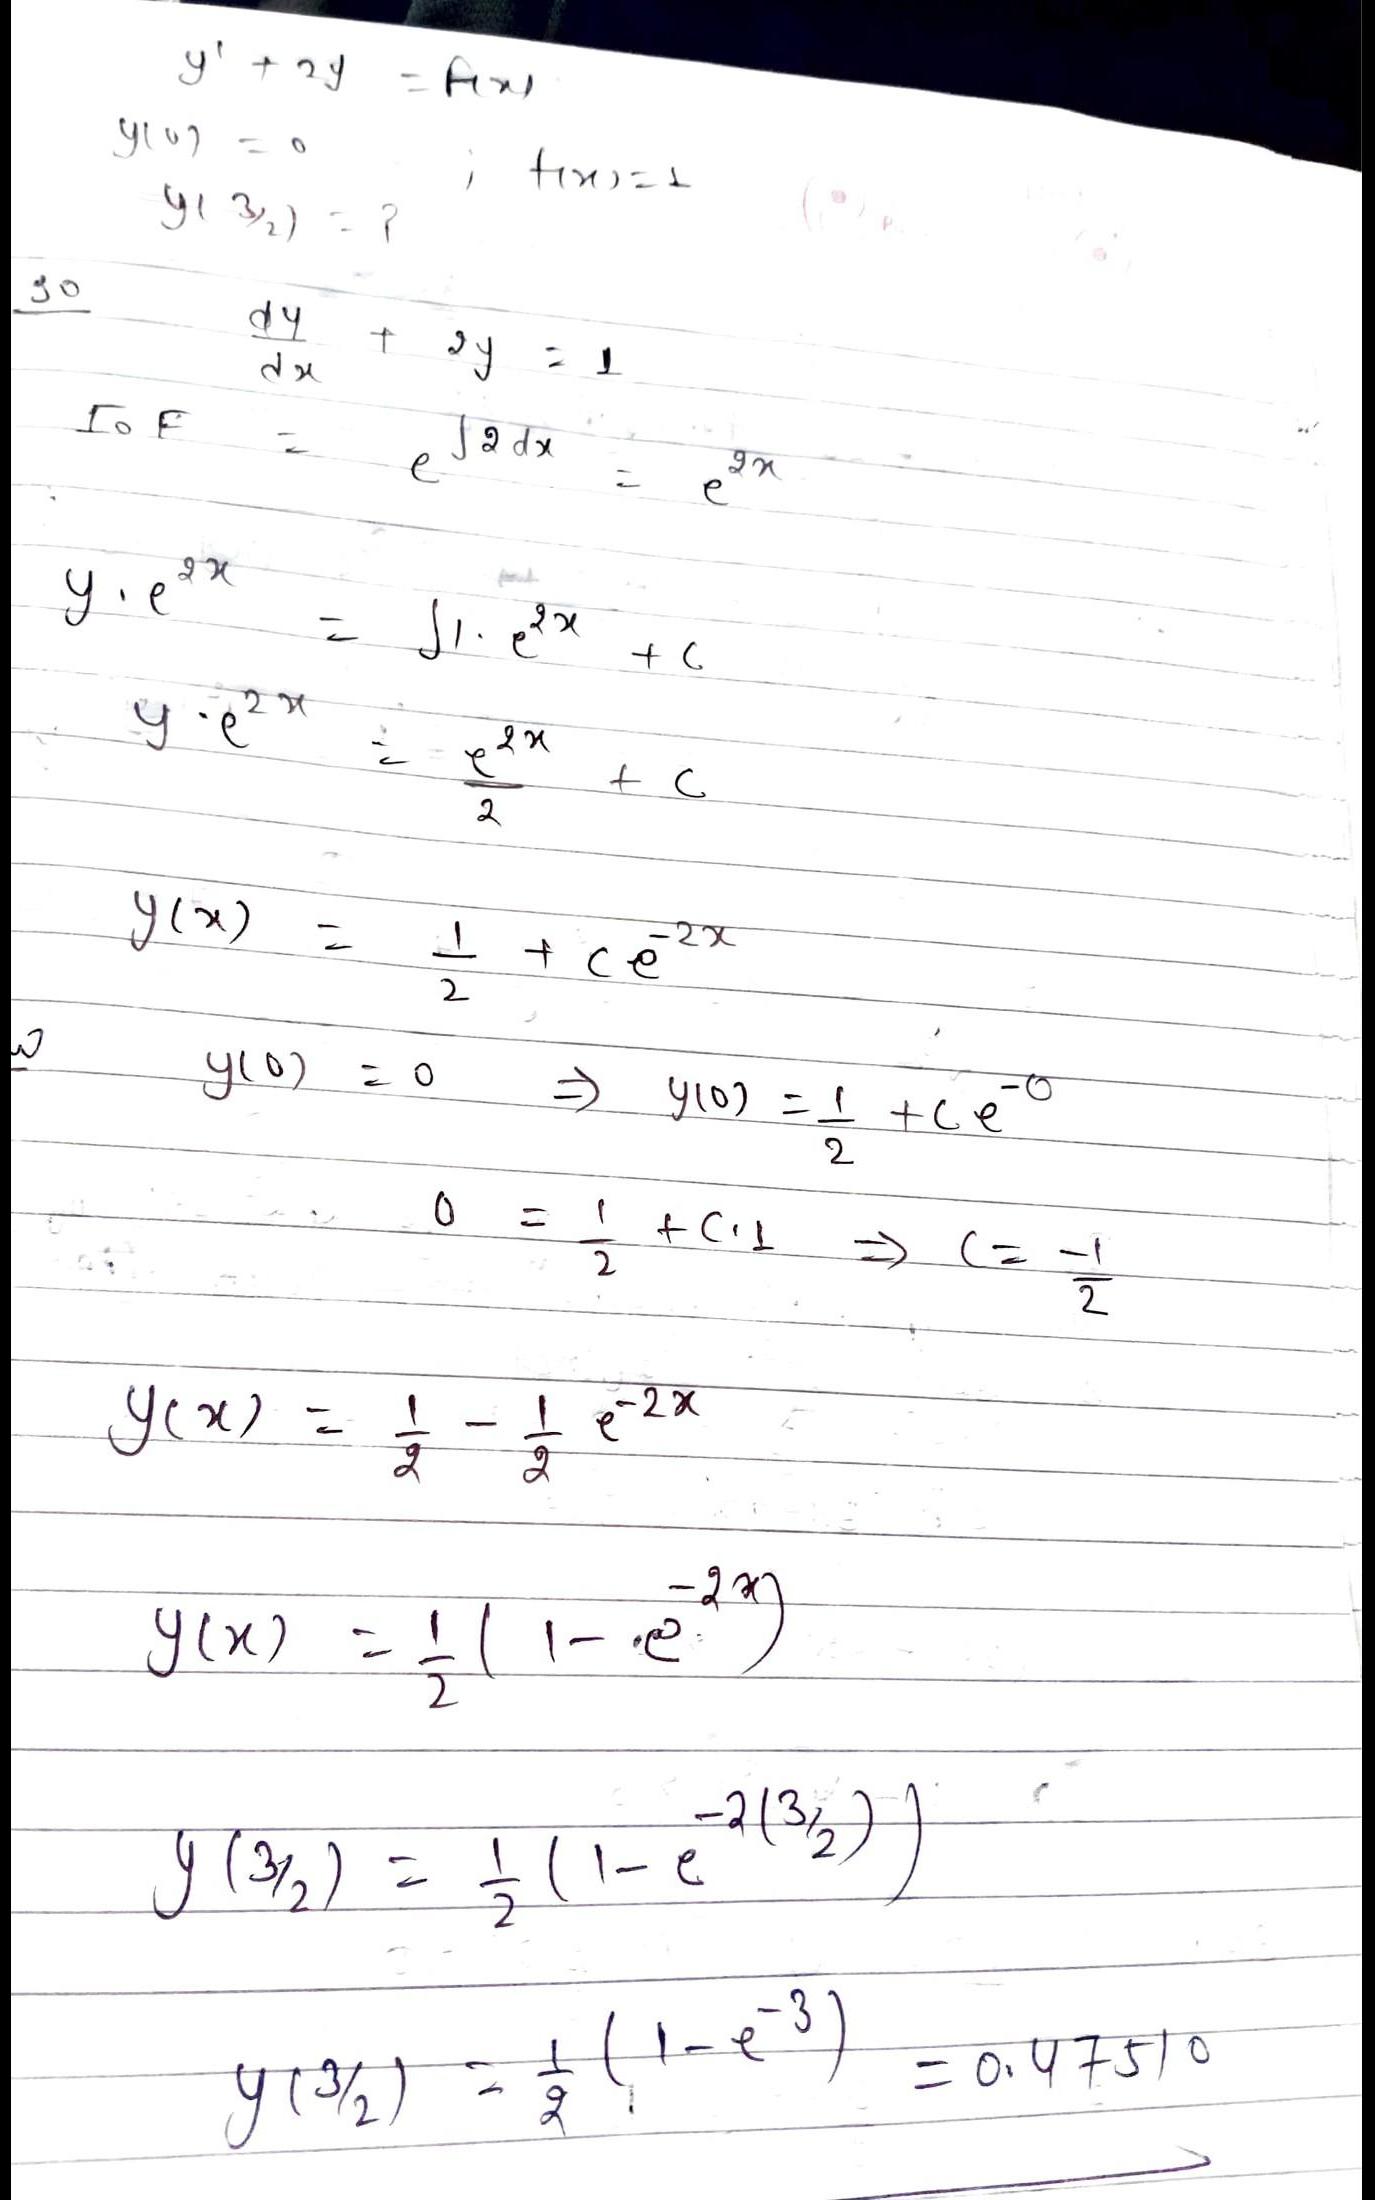 y' + 2y = f(x)
y(0) = 0 ; f(x) = 1
y(3/2) = ?
so dy/dx + 2y = 1
I.F = e^∫2dx = e^2x
y.e^2x = ∫1.e^2x + C
y.e^2x = e^2x/2 + C
y(x) = 1/2 + Ce^-2x
w y(0) = 0 ⇒ y(0) = 1/2 + Ce^-0
0 = 1/2 + C.1 ⇒ C = -1/2
y(x) = 1/2 - 1/2 e^-2x
y(x) = 1/2 (1 - e^-2x)
y(3/2) = 1/2 (1 - e^-2(3/2))
y(3/2) = 1/2 (1 - e^-3) = 0.47510